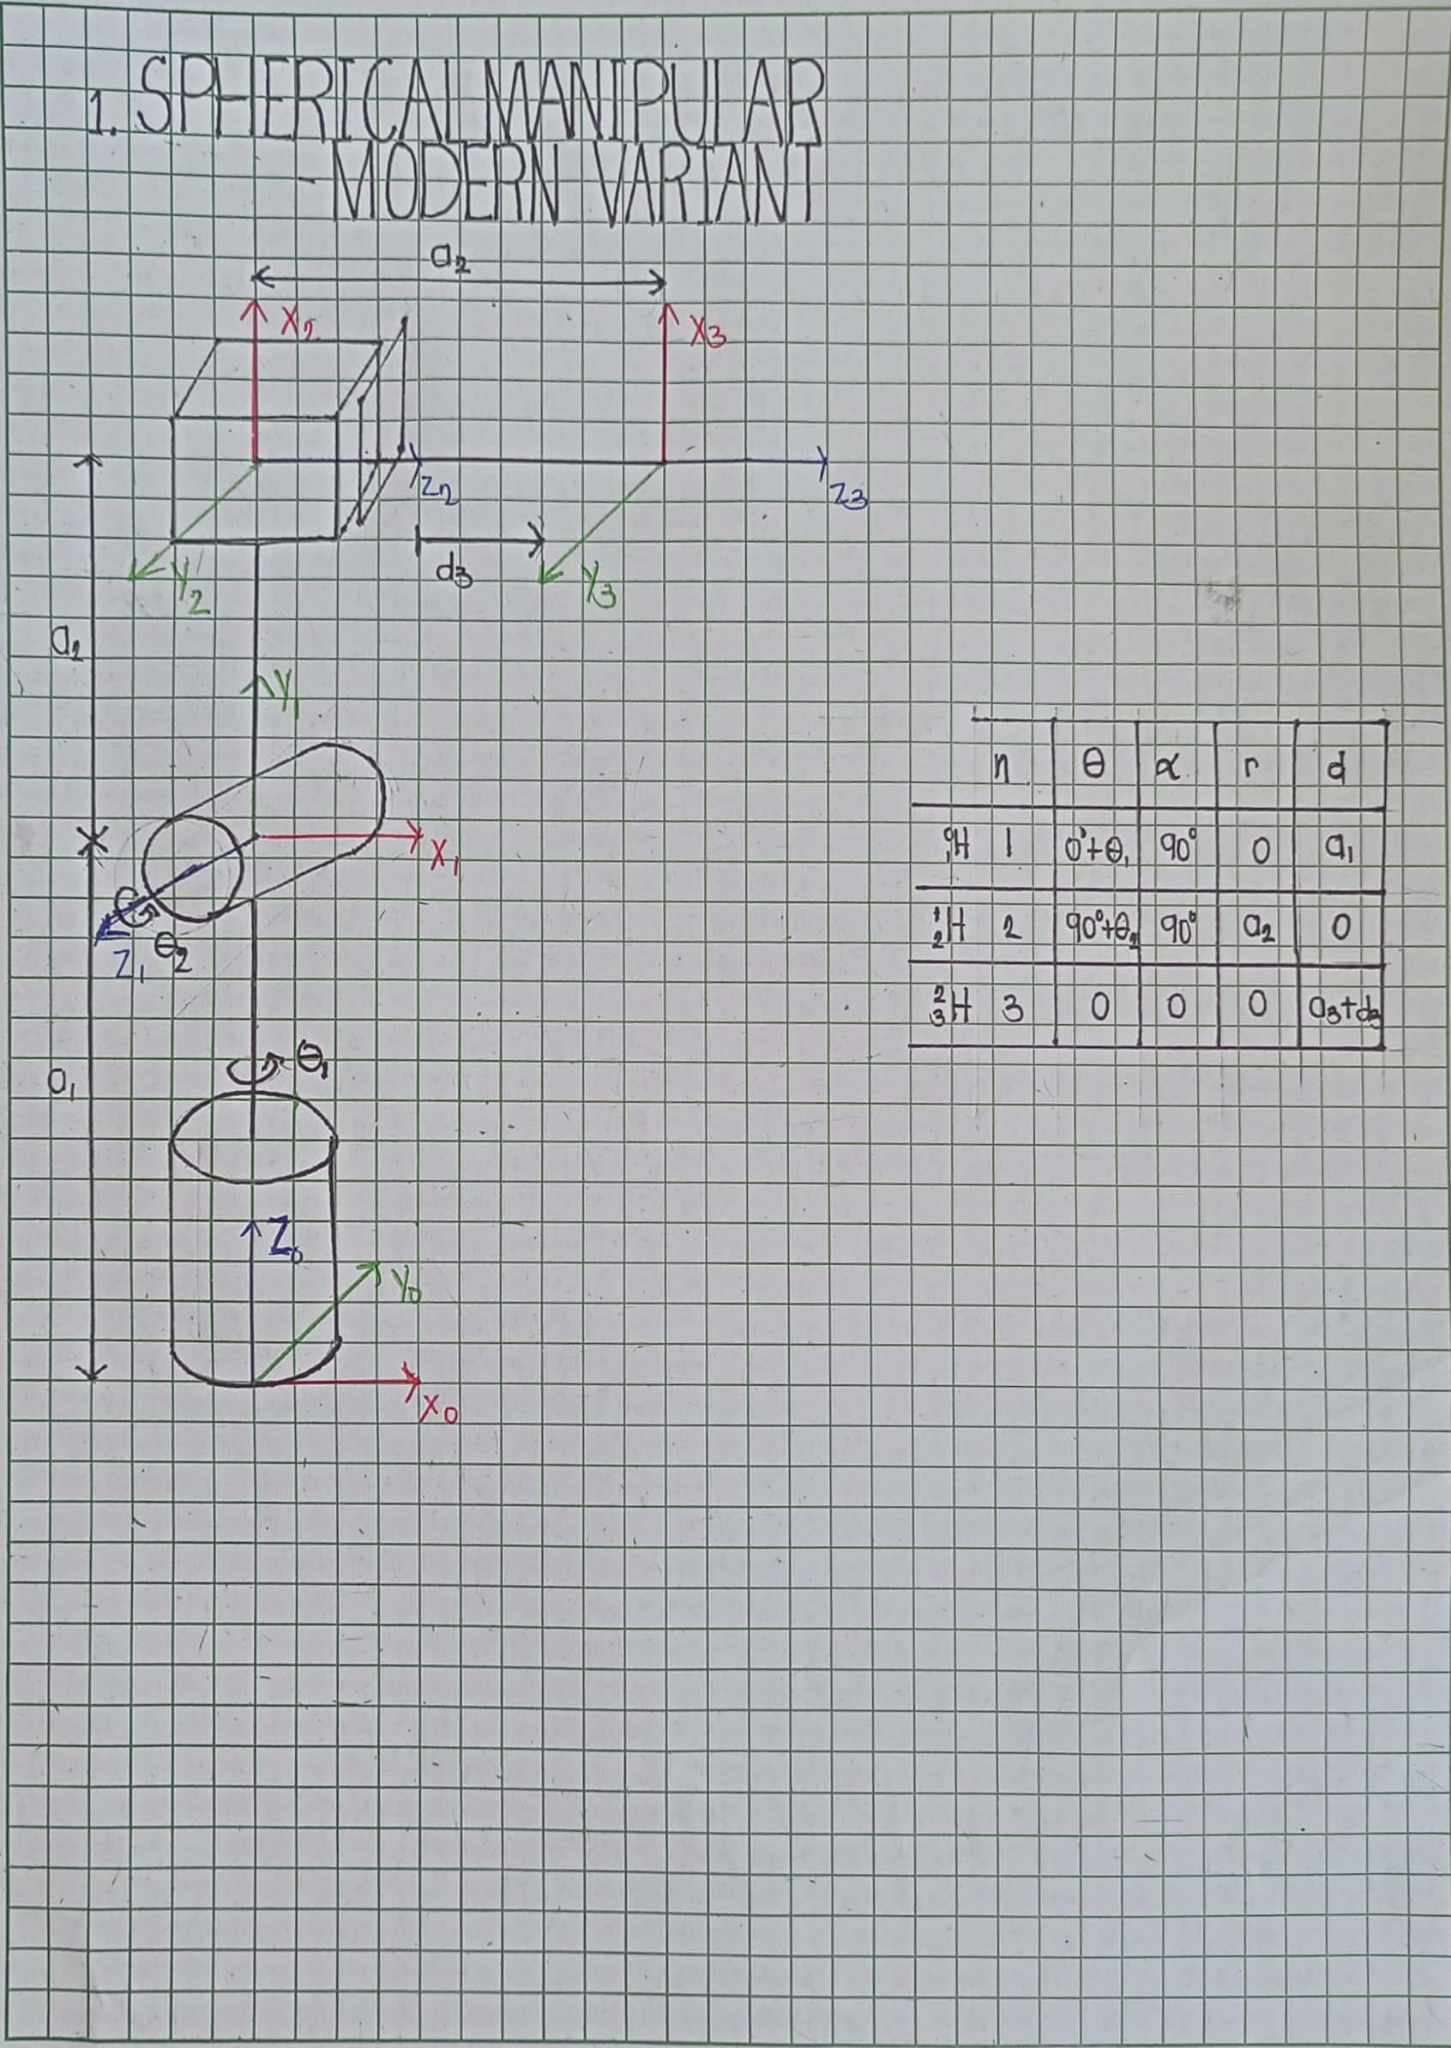 1. SPHERICAL MANIPULAR
- MODERN VARIANT
a₂
X₂
X₃
Z₂
Z₃
d₃
Y₂
Y₃
a₂
Y₁
X₁
Z₁
θ₂
θ₁
a₁
Z₀
Y₀
X₀
n θ α r d
⁰₁H 1 0°+θ₁ 90° 0 a₁
¹₂H 2 90°+θ₂ 90° a₂ 0
²₃H 3 0 0 0 a₃+d₃